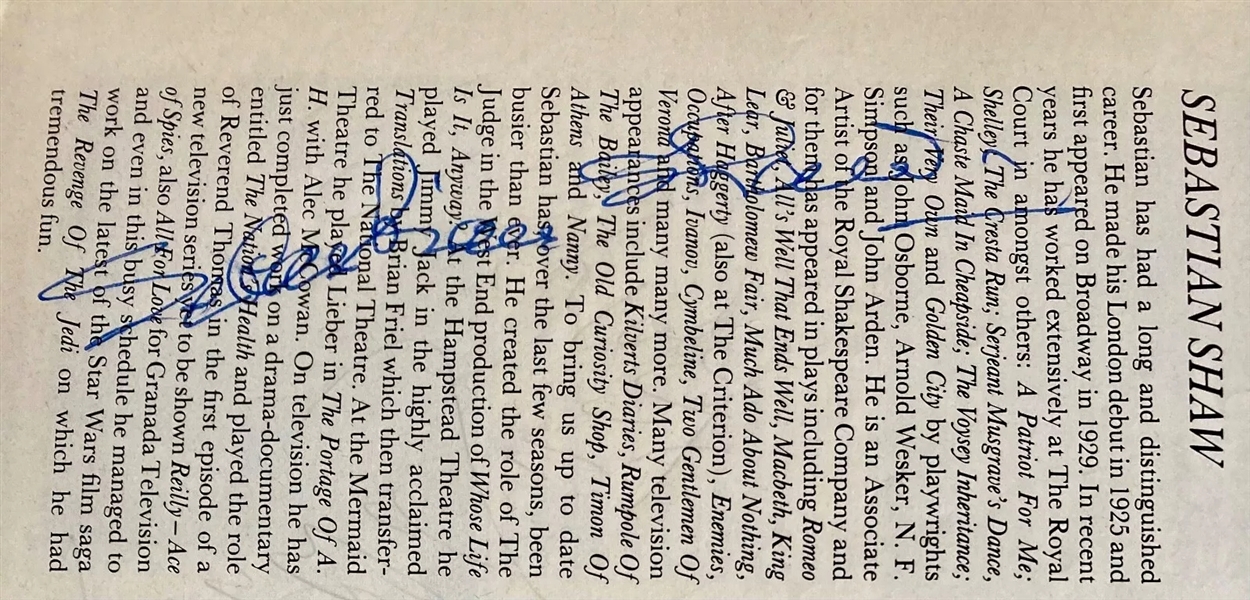 SEBASTIAN SHAW
Sebastian has had a long and distinguished
career. He made his London debut in 1925 and
first appeared on Broadway in 1929. In recent
years he has worked extensively at The Royal
Court in amongst others: A Patriot For Me;
Shelley; The Cresta Run; Serjeant Musgrave's Dance,
A Chaste Maid In Cheapside; The Voysey Inheritance;
Their Very Own and Golden City by playwrights
such as John Osborne, Arnold Wesker, N. F.
Simpson and John Arden. He is an Associate
Artist of the Royal Shakespeare Company and
for them has appeared in plays including Romeo
& Juliet, All's Well That Ends Well, Macbeth, King
Lear, Bartholomew Fair, Much Ado About Nothing,
After Haggerty (also at The Criterion), Enemies,
Occupations, Ivanov, Cymbeline, Two Gentlemen Of
Verona and many many more. Many television
appearances include Kilverts Diaries, Rumpole Of
The Bailey, The Old Curiosity Shop, Timon Of
Athens and Nanny. To bring us up to date
Sebastian has over the last few seasons, been
busier than ever. He created the role of The
Judge in the West End production of Whose Life
Is It, Anyway? At the Hampstead Theatre he
played Jimmy Jack in the highly acclaimed
Translations by Brian Friel which then transfer-
red to The National Theatre. At the Mermaid
Theatre he played Lieber in The Portage Of A.
H. with Alec McCowan. On television he has
just completed work on a drama-documentary
entitled The Nation's Health and played the role
of Reverend Thomas in the first episode of a
new television series yet to be shown Reilly–Ace
of Spies, also All For Love for Granada Television
and even in this busy schedule he managed to
work on the latest of the Star Wars film saga
The Revenge Of The Jedi on which he had
tremendous fun.